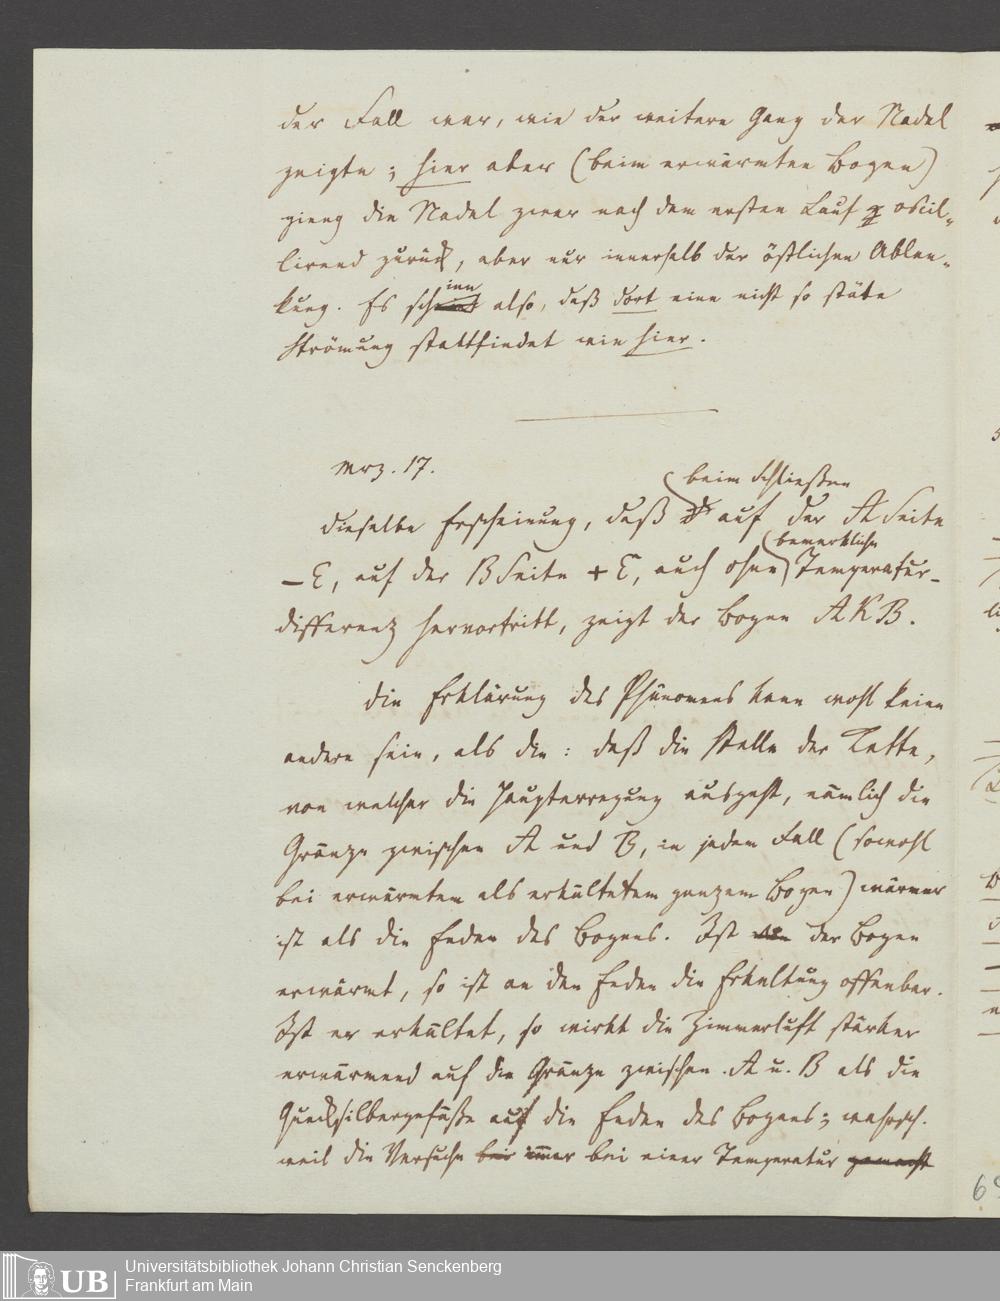 der Fall war, wie der weitere Gang der Nadel
zeigte; hier aber (beim erwärmten Bogen)
gieng die Nadel zwar nach dem ersten Lauf oscil-
lirend zurück, aber nur innerhalb der östlichen Ablen-
kung. Es schien also, daß dort eine nicht so stäte
Strömung stattfindet wie hier.
Mrz. 17.
beim Schließen
Dieselbe Erscheinung, daß auf der A Seite
bemerkliche
– E, auf der B Seite + E, auch ohne Temperatur-
differenz hervortritt, zeigt der Bogen AKB.
Die Erklärung des Phänomens kann wohl keine
andere sein, als die: daß die Stelle der Kette,
von welcher die Haupterregung ausgeht, nämlich die
Gränze zwischen A und B, in jedem Fall (sowohl
bei erwärmtem als erkältetem ganzem Bogen) wärmer
ist als die Enden des Bogens. Ist der Bogen
erwärmt, so ist an den Enden die Erkaltung offenbar.
Ist er erkältet, so wirkt die Zimmerluft stärker
erwärmend auf die Gränze zwischen A u. B als die
Quecksilbergefäße auf die Enden des Bogens; wahrsch.
weil die Versuche bei immer bei einer Temperatur gemacht
Universitätsbibliothek Johann Christian Senckenberg
Frankfurt am Main
UB